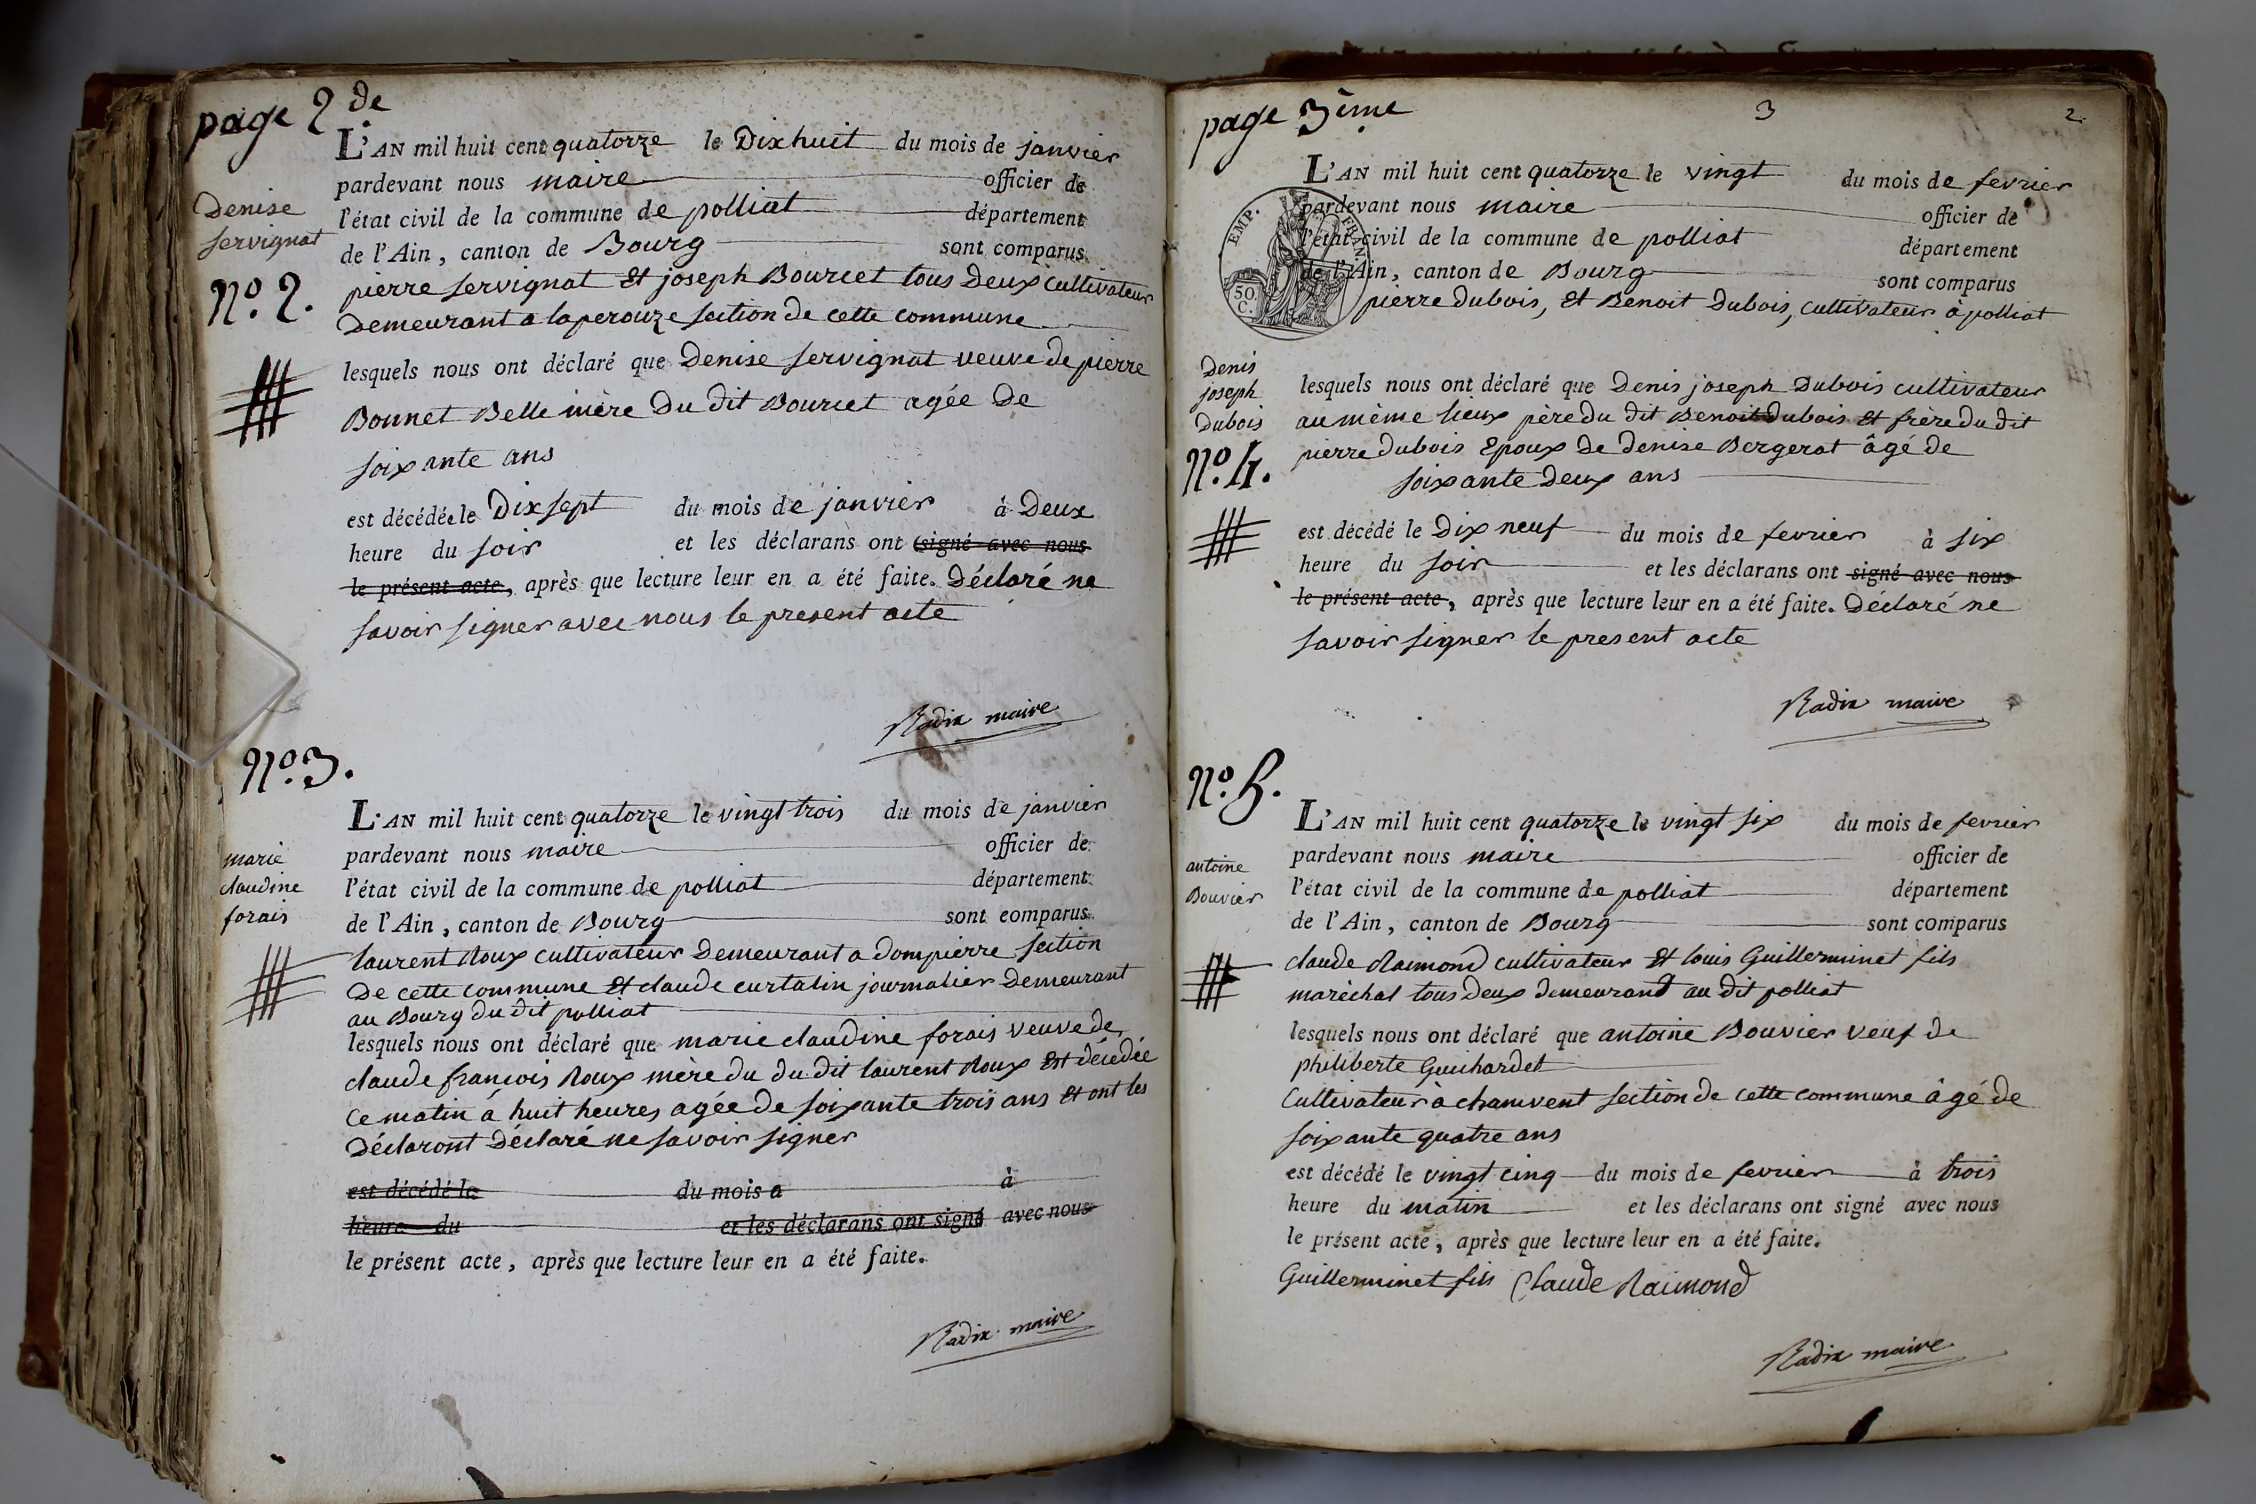 page 2 de
L'AN mil huit cent quatorze le Dix huit du mois de janvier
pardevant nous maire officier de
l'état civil de la commune de polliat département
de l'Ain, canton de Bourg sont comparus
Denise
servignat
No. 2.
pierre servignat Et joseph Bourcet tous Deux cultivateur
Demeurant a laperouze section de cette commune
lesquels nous ont déclaré que Denise servignat veuve de pierre
Bonnet Belle mère Du dit Bourcet agée De
soixante ans
est décédée le Dix sept du mois de janvier à Deux
heure du soir et les déclarans ont signé avec nous
le présent acte, après que lecture leur en a été faite. Déclaré ne
savoir signer avec nous le present acte
Radix maire
No. 3.
L'AN mil huit cent quatorze le vingt trois du mois de janvier
pardevant nous maire officier de
l'état civil de la commune de polliat département
de l'Ain, canton de Bourg sont comparus
marie
claudine
forais
laurent Roux cultivateur Demeurant a dompierre section
De cette commune Et claude curtalin journalier Demeurant
au Bourg du dit polliat
lesquels nous ont déclaré que marie claudine forais veuve de
claude françois Roux mère du du dit laurent Roux Est décédée
ce matin à huit heures agée de soixante trois ans Et ont les
Déclaront Déclaré ne savoir signer
est décédé le du mois a à
heure du et les déclarans ont signé avec nous
le présent acte, après que lecture leur en a été faite.
Radix maire
page 3ème
3
2
EMP. FRAN
50
C.
L'AN mil huit cent quatorze le vingt du mois de fevrier
pardevant nous maire officier de
l'état civil de la commune de polliat département
de l'Ain, canton de Bourg sont comparus
pierre dubois, Et Benoit Dubois, cultivateur à polliat
Denis
joseph
Dubois
No. 4.
lesquels nous ont déclaré que Denis joseph Dubois cultivateur
au même lieux père du dit Benoit dubois Et frère du dit
pierre dubois Epoux De Denise Bergerat âgé de
soixante Deux ans
est décédé le Dix neuf du mois de fevrier à six
heure du soir et les déclarans ont signé avec nous
le présent acte, après que lecture leur en a été faite. Déclaré ne
savoir signer le present acte
Radix maire
No. 5.
L'AN mil huit cent quatorze le vingt six du mois de fevrier
pardevant nous maire officier de
l'état civil de la commune de polliat département
de l'Ain, canton de Bourg sont comparus
antoine
Bouvier
claude Raimond cultivateur Et louis Guillerminet fils
maréchal tous Deux demeurand au dit polliat
lesquels nous ont déclaré que antoine Bouvier veuf de
philiberte Guichardet
Cultivateur à chanvent section de cette commune âgé de
soixante quatre ans
est décédé le vingt cinq du mois de fevrier à trois
heure du matin et les déclarans ont signé avec nous
le présent acte, après que lecture leur en a été faite.
Guillerminet fils Claude Raimond
Radix maire